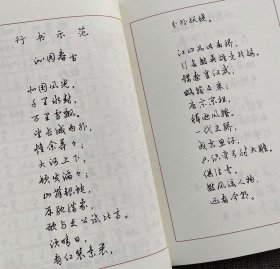 行书示范
沁园春雪
北国风光，
千里冰封，
万里雪飘。
望长城内外，
惟余莽々；
大河上下，
顿失滔々；
山舞银蛇，
原驰蜡象，
欲与天公试比高。
须晴日，
看红装素裹，
分外妖娆。
江山如此多娇，
引无数英雄竞折腰。
惜秦皇汉武，
略输文采；
唐宗宋祖，
稍逊风骚。
一代天骄，
成吉思汗，
只识弯弓射大雕。
俱往矣，
数风流人物，
还看今朝。